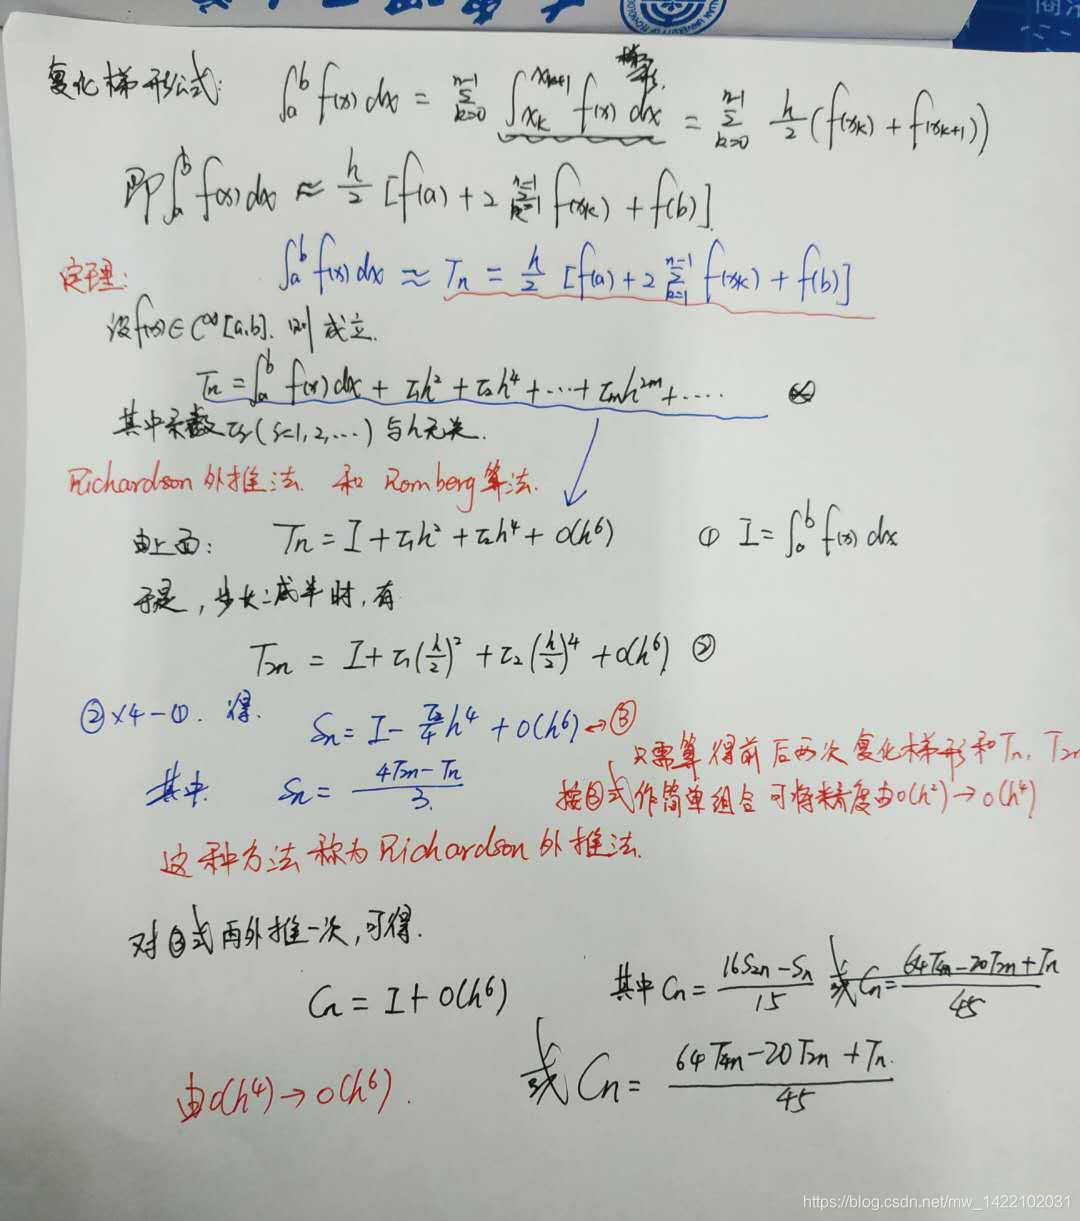 复化梯形公式: ∫_a^b f(x) dx = Σ_{k=0}^{n-1} ∫_{x_k}^{x_{k+1}} f(x) dx = Σ_{k=0}^{n-1} h/2 (f(x_k) + f(x_{k+1}))
梯形
即 ∫_a^b f(x) dx ≈ h/2 [f(a) + 2 Σ_{k=1}^{n-1} f(x_k) + f(b)]
∫_a^b f(x) dx ≈ T_n = h/2 [f(a) + 2 Σ_{k=1}^{n-1} f(x_k) + f(b)]
定理:
设 f(x) ∈ C^∞[a,b]. 则成立.
T_n = ∫_a^b f(x) dx + τ_1h^2 + τ_2h^4 + ··· + τ_mh^{2m} + ····
其中系数 τ_s (s=1,2,···) 与h无关.
Richardson 外推法. 和 Romberg 算法.
由上面: T_n = I + τ_1h^2 + τ_2h^4 + O(h^6) ① I = ∫_a^b f(x) dx
于是, 步长二减半时, 有
T_{2n} = I + τ_1(h/2)^2 + τ_2(h/2)^4 + O(h^6) ②
②×4-①. 得. S_n = I - τ_2/4 h^4 + O(h^6) ←③
只需算得前后两次复化梯形和 T_n, T_{2n}
其中. S_n = (4T_{2n} - T_n)/3.
按③式作简单组合可将精度由O(h^2)→O(h^4)
这种方法称为Richardson外推法.
对③式再外推一次, 可得.
C_n = I + O(h^6) 其中 C_n = (16S_{2n} - S_n)/15 或 C_n = (64T_{4n} - 20T_{2n} + T_n)/45
或 C_n = (64T_{4n} - 20T_{2n} + T_n)/45
由O(h^4)→O(h^6).
https://blog.csdn.net/mw_1422102031